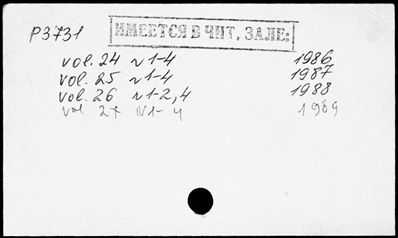 P3731
ИМЕЕТСЯ В ЧИТ, ЗАЛЕ:
vol. 24 N1-4 1986
vol. 25 N1-4 1987
vol. 26 N1-2,4 1988
vol 27 N1-4 1989